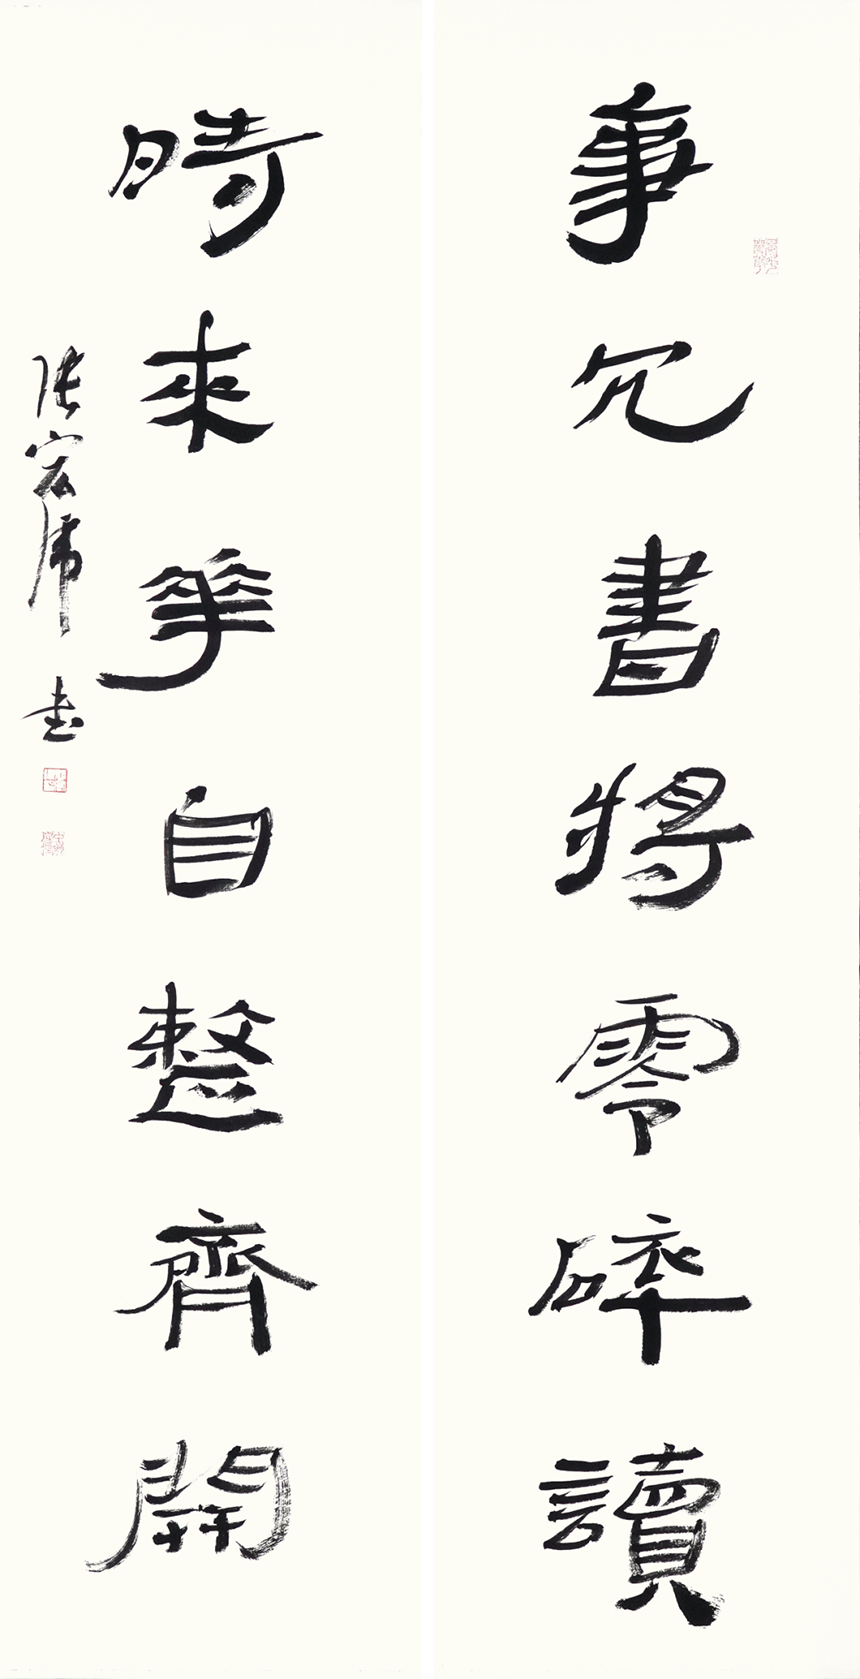 事冗書將零碎讀
時來華自整齊開
張宏虎書